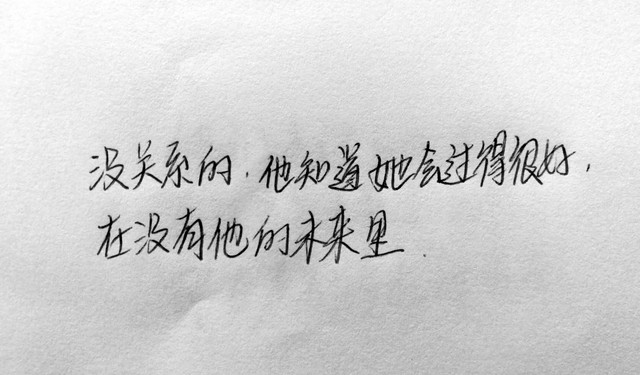 没关系的.他知道她会过得很好,
在没有他的未来里.